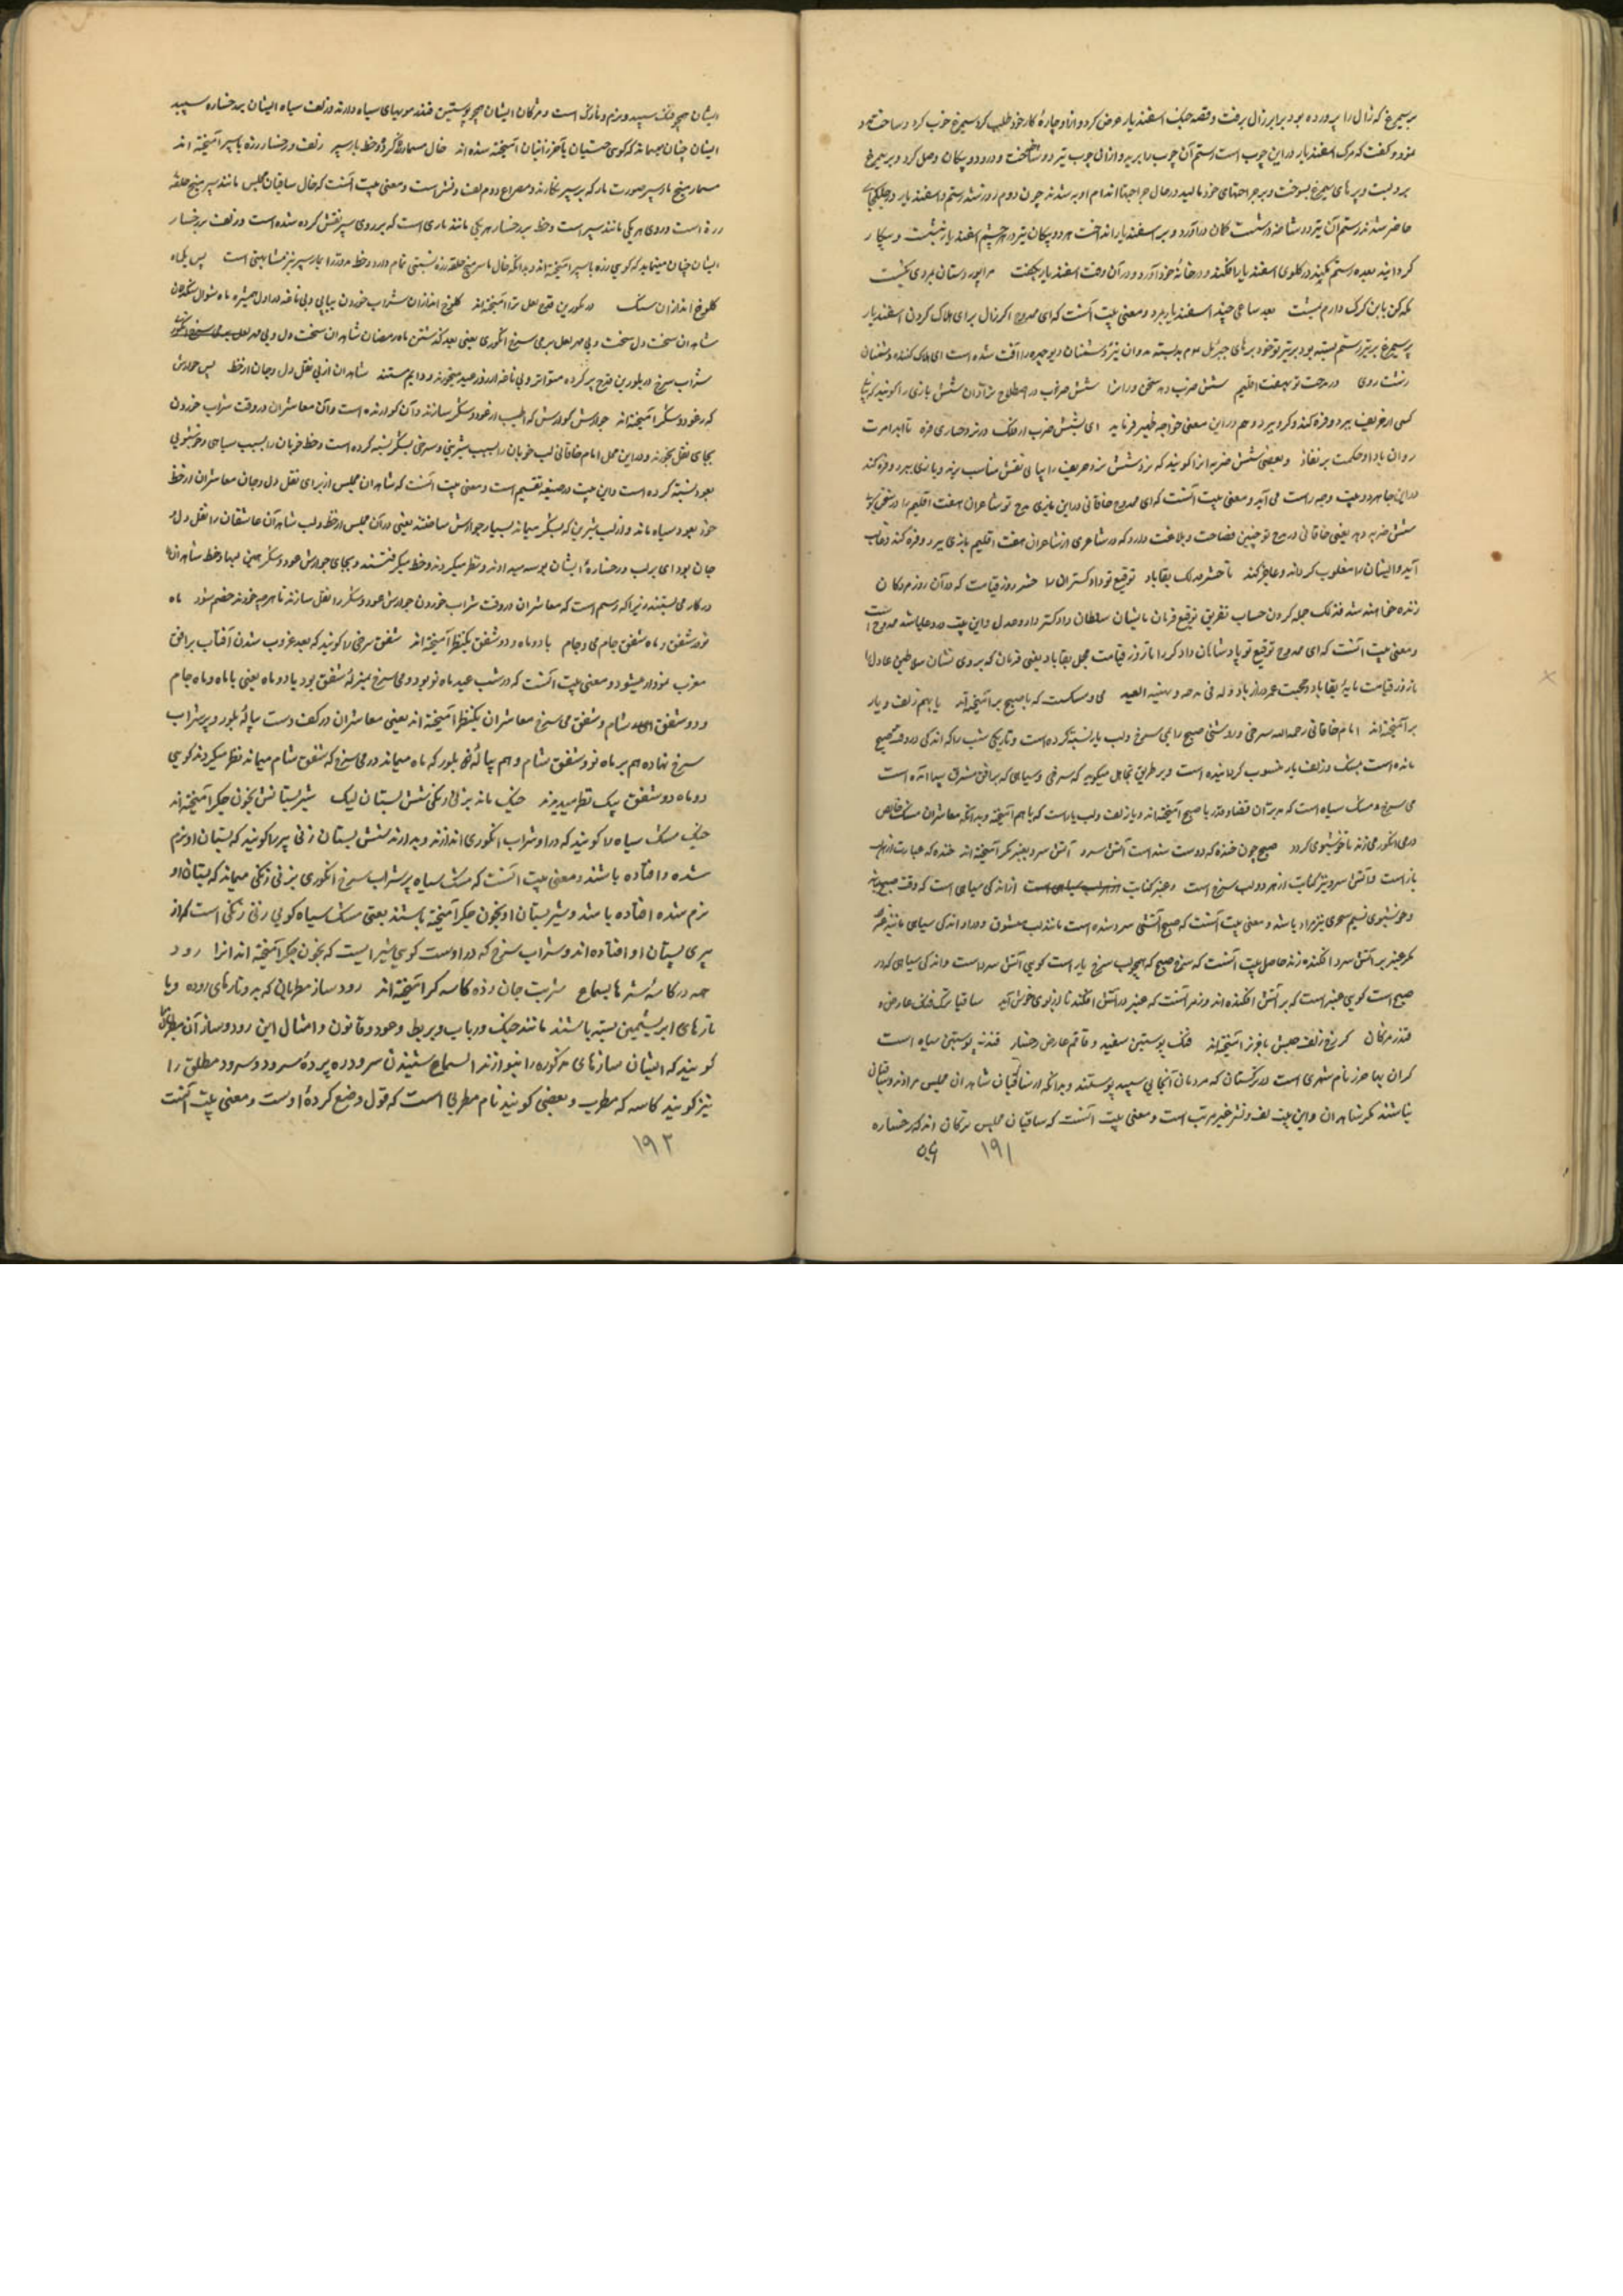 بر سیمرغ که زال را پرورده بود برابر زال برفت و قصه جنک اسفندیار عرض کرد و ازو چارهٔ کار خود طلب کرد سیمرغ
نمود و کفت که مرک اسفندیار در این چوب است رستم آن چوب را برید و از آن چوب تیر دو شاخه ساخت و درو دو پیکان وصل کرد و پر سیمرغ
برو بست و پرهای سیمرغ بسوخت و بر جراحتهای خود مالید در حال جراحتها اندام او به شدند چون دوم روز شد رستم و اسفندیار در جنک
حاضر شدند رستم آن تیر دو شاخه در شست کمان در آورد و بر اسفندیار انداخت هر دو پیکان تیر در هر چشم اسفندیار نشست و بیکار
کردانید بعده رستم کمند در کلوی اسفندیار افکند و در خانهٔ خود آورد و در آن وقت اسفندیار بکفت مرا پور دستان بمردی نکشت
بعد ساعتی چند اسفندیار بمرد و معنی بیت آنست که ای ممدوح اکر زال برای هلاک کردن اسفندیار
پر سیمرغ بر تیر رستم بسته بود بر تیر تو خود پرهای جبرئیل
زشت روی در مدحت تو بهفت اقلیم شش ضرب دهد سخن ورانرا شش ضرب در اصطلاح
کسی از حریف ببرد و فره کند و کرو ببرد و هم در این معنی خواجه ظهیر فرماید
روان باد او حکمت بر نفاذ و بعضی شش ضربه انرا کویند که نرد شش زند و حریف را
در این جا هر دو وجه راست می آید و معنی بیت آنست که ای ممدوح خاقانی در این بازی مدح تو شاعران هفت اقلیم را در سخن کوئی
شش ضربه دهد یعنی خاقانی در مدح تو چنین فصاحت و بلاغت دارد که در شاعری از شاعران هفت اقلیم بازی ببرد و فره کند و غالب
آید و ایشان را مغلوب کرداند و عاجز کند تا حشر فذلک بقا باد توقیع تو داد کستران را حشر روز قیامت که در آن روز مردکان
زنده خواهند شد فذلک جمله کردن حساب تفریق توقیع فرمان با نشان سلطان داد کستر دارو عدل و این بیت در دعا باشد ممدوح است
و معنی بیت آنست که ای ممدوح توقیع تو پادشاهان داد کر را تا روز قیامت مجمل بقا باد یعنی فرمان که بروی نشان
تا روز قیامت مایهٔ بقا باد و له فی مدحه و تهنیة العید می و مشکست که با صبح بر آمیخته اند یا بهم زلف و لب یار
بر آمیخته اند امام خاقانی رحمه الله سرخی و روشنی صبح را بمی سرخ و لب یار نسبت کرده است و تاریکی شب را که اندکی در وقت صبح
مانده است بمشک و زلف یار منسوب کردانیده است و بر طریق تجاهل میکوید که سرخی و سیاهی که بر افق مشرق پیدا آمده است
می سرخ و مشک سیاه است که مدبران قضا و قدر با صبح آمیخته اند و یا زلف و لب یار است که با هم آمیخته و بدانکه معاشران مشک خالص
در می انکوری میزنند تا خوشبوی کردد صبح چون خنده که دوست شده است آتش سرد آتش سرد بعنبر مکر آمیخته اند
باز است و آتش سرد نیز کنایت از هر دو لب سرخ است و عنبر کنایت از اندکی سیاهی است که وقت صبح
و خوشبوی نسیم سحری نیز مراد باشد و معنی بیت آنست که صبح آتشی سرد شده است مانند لب معشوق و در او اندکی سیاهی مانند عنبر
مکر عنبر بر آتش سرد افکنده اند حاصل بیت آنست که سرخ صبح که همچو لب سرخ یار است کویی آتش سرد است و اندکی سیاهی که در
صبح است کویی عنبر است که بر آتش افکنده اند و رسم آنست که عنبر در آتش افکنند تا از بوی خوش آید ساقیا ترک فنک عارض و
قندز مژکان کز رخ زلف حبش با خزر آمیخته اند فنک پوستین سفید و قاقم عارض رخسار قندز پوستین سیاه است
کران بها خزر نام شهری است در ترکستان که مردمان آنجایی سپید پوستند و بدانکه
نباشند مکر شاهدان و این بیت لف و نشر غیر مرتب است و معنی بیت آنست که ساقیان مجلس ترکان اند که رخساره
۱۹۱
ایشان همچو فنک سپید و نرم و نازک است و مژکان ایشان همچو پوستین قندز موییهای سیاه دارند و زلف سیاه ایشان بر رخساره سپید
ایشان چنان میماند که کوی حبشیان با خزرانیان آمیخته شده اند خال مسمار و زلف و رخسار زره با سپر آمیخته اند
مسمار میخ مار سپر صورت مار که بر سپر نکارند و مصراع دوم لف و نشر است و معنی بیت آنست که خال ساقیان مجلس مانند سر میخ حلقه
زره است و روی هر یکی مانند سپر است و خط بر رخسار هر یکی مانند ماری است که بر روی سپر نقش کرده شده است و زلف بر رخسار
ایشان چنان مینماید که کویی زره با سپر آمیخته اند و بدانکه خال با سر میخ حلقه زره نسبتی تمام دارد و خط مدور را بمار سپر نیز مشابهتی است پس یکماه
کلوخ اندازان سنک در بلورین قدح لعل تر آمیخته اند کلوخ اندازان شراب خوردن پیاپی و بی ناغه
شاهدان سخت دل سخت و بی مهر لعل تر می سرخ انکوری یعنی بعد کذشتن ماه رمضان شاهدان سخت دل و بی مهر
شراب سرخ در بلورین قدح پر کرده متواتر و بی ناغه از روز عید میخورند و دایم مستند شاهدان از پی نقل دل و جان از خط پس جوارش
که ز عود و شکر آمیخته اند جوارش کوارش که اطیب از عود و شکر سازند و آن کوارنده است و آن معاشران در وقت شراب خوردن
بجای نقل بخورند و در این محل امام خاقانی لب خوبان را بسبب شیرینی و سرخی بشکر نسبه کرده است و خط خوبان را بسبب سیاهی و خوشبویی
بعود نسبت کرده است و این بیت در صیغه تقسیم است و معنی بیت آنست که شاهدان مجلس از برای نقل دل و جان معاشران از خط
خود بعود سیاه ماند و از لب شیرین که بشکر میماند بسیار جوارش ساختند یعنی در آن مجلس از خط و لب شاهدان عاشقان را نقل دل و
جان بود ای بر لب و رخسارهٔ ایشان بوسه میدادند و نظر میکردند و حظ میکرفتند و بجای جوارش عود و شکر همین لبها و خط شاهدان
در کار می بستند زیرا که رسم است که معاشران در وقت شراب خوردن جوارش عود و شکر را نقل سازند تا هر چه خورند هضم شود ماه
نو و شفق و ماه شفق جام می و جام یا دو ماه و دو شفق یکنظر آمیخته اند شفق سرخی را کویند که بعد غروب شدن آفتاب بر افق
مغرب نمودار میشود و معنی بیت آنست که در شب عید ماه نو بود و می سرخ بمنزلهٔ شفق بود یا دو ماه یعنی یا ماه و ماه جام
و دو شفق ای شفق شام و شفق می سرخ معاشران یکنظر آمیخته اند یعنی معاشران در کف دست پیالهٔ بلور و پر شراب
سرخ نهاده هم بر ماه نو و شفق شام و هم پیالهٔ بلور که ماه میماند در می سرخ که شفق شام میماند نظر میکردند کویی
دو ماه دو شفق بیک نظر میدیدند خیک ماند بزنی زنکی شش پستان لیک شیر پستانش بخون جکر آمیخته اند
خیک مشک سیاه را کویند که در او شراب انکوری اندازند و بدارند شش پستان زنی پیر را کویند که پستان او نرم
شده و افتاده باشند و معنی بیت آنست که مشک سیاه پر شراب سرخ انکوری بزنی زنکی میماند که پستان او
نرم شده افتاده باشد و شیر پستان او بخون جکر آمیخته باشند یعنی مشک سیاه کویی زنی زنکی است که از
پیری پستان او افتاده اند و شراب سرخ که در اوست کویی شیرایست که بخون جکر آمیخته اند انرا رود
همه در کاسهٔ سرها بسماع شربت جان ز ده کاسه کر آمیخته اند رود ساز مطربانی که بر و تارهای روده و یا
تارهای ابریشمین بسته باشند مانند چنک و رباب و بربط و عود و قانون و امثال این رود و ساز آن مطربان
کویند که ایشان سازهای مذکوره را بنوازند السماع شنیدن سرود و پردهٔ سرود و سرود مطلق را
نیز کویند کاسه که مطرب و بعضی کویند نام مطربی است که قول وضع کردهٔ اوست و معنی بیت آنست
۱۹۲